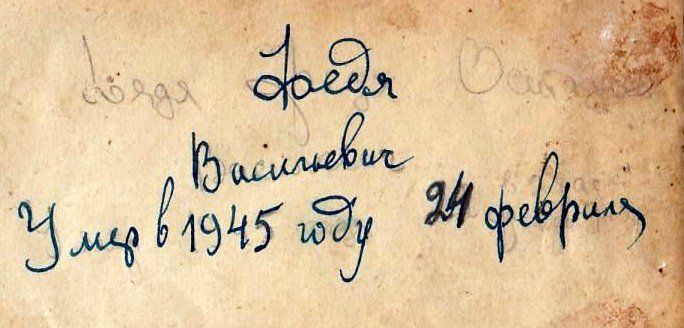 Федя
Васильевич
Умер в 1945 году 24 февраля